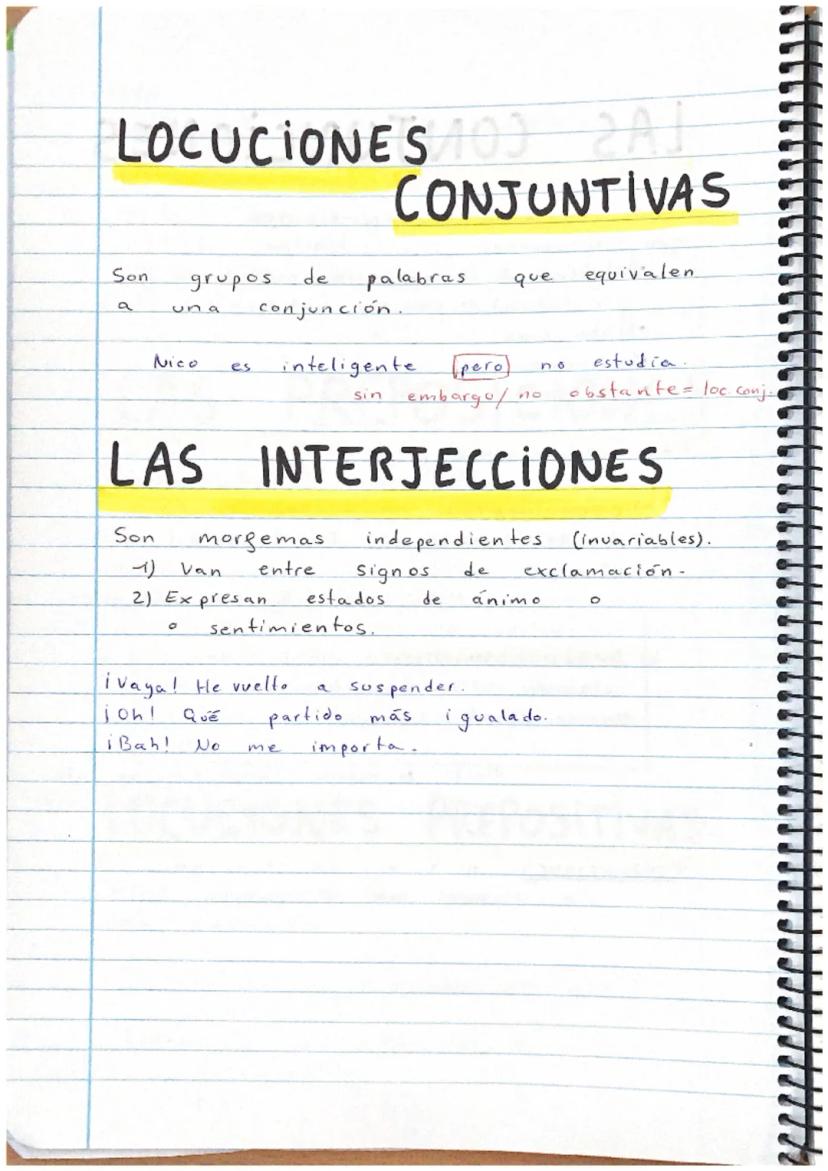 LOCUCIONES
CONJUNTIVAS
Son grupos de palabras que equivalen
a una conjunción.
Nico es inteligente pero no estudia.
sin embargo/ no obstante = loc. conj.
LAS INTERJECCIONES
Son morgemas independientes (invariables).
1) Van entre signos de exclamación.
2) Expresan estados de ánimo o
o sentimientos.
¡Vaya! He vuelto a suspender.
¡Oh! Qué partido más igualado.
¡Bah! No me importa.